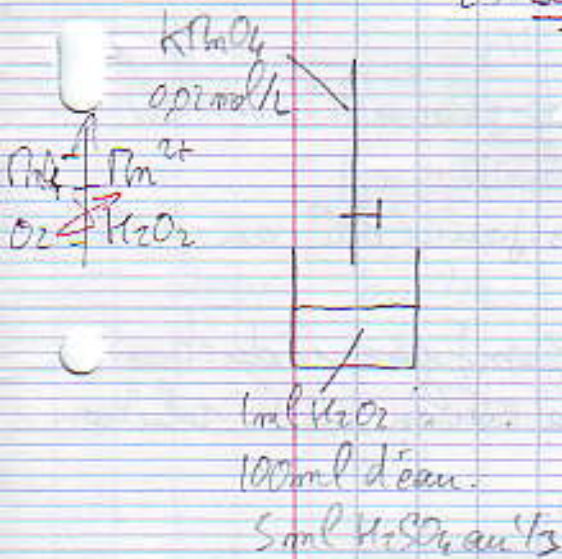 KMnO4
0,02 mol/L
MnO4⁻ Mn²⁺
O2 H2O2
1ml H2O2
100ml d'eau.
5ml H2SO4 au 1/3